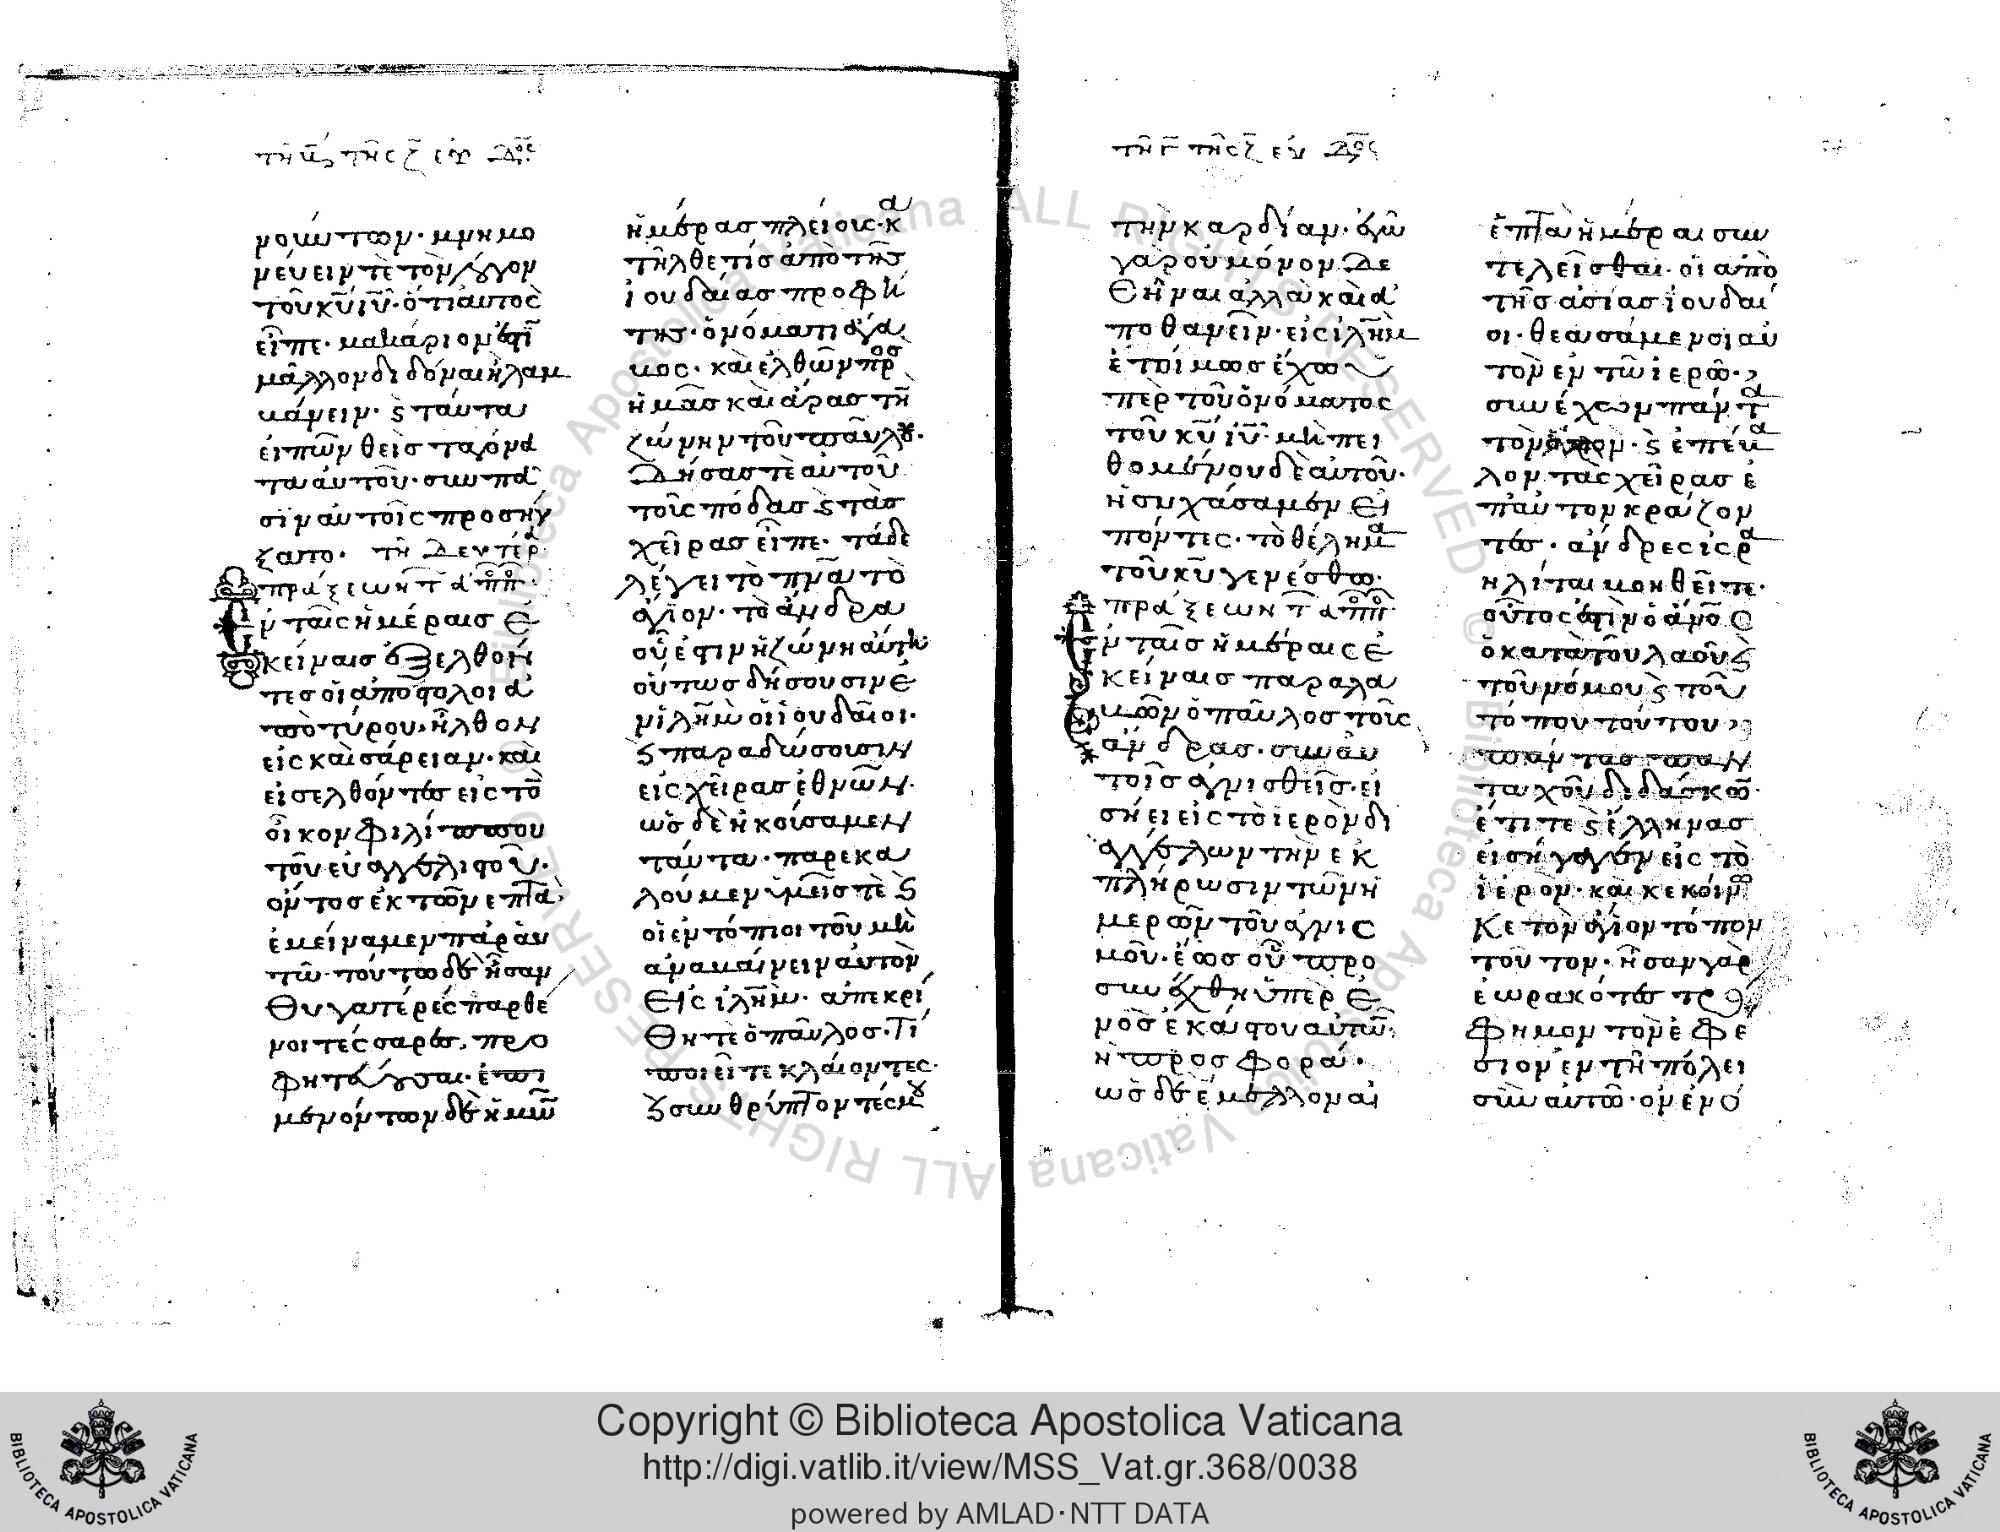 τῆ κυ τῆς ζ ἑβ δος
νούντων· μνημο
νεύειν τὲ τὸν λόγον
τοῦ κυ ιυ· ὅτι αυτος
εἶπε· μακάριον ἐστὶ
μᾶλλον διδόναι ἢ λαμ
βάνειν· ϗ ταῦτα
εἰπὼν θεὶσ τα γόνα
τα αὐτοῦ· συν πᾶ
σιν αὐτοῖς προσηύ
ξατο· τῆ δευτέρα
πράξεων τ ἀππ
ἐν ταῖς ἡμέραισ ἐ
κείναισ ἐξελθόν
τεσ οἱ ἀπόστολοι ἀ
πὸ τύρου, ἦλθον
εἰς καισάρειαν· καὶ
εἰσελθόντες εἰς τὸ
οἶκον φιλίππου
τοῦ εὐαγγελιστοῦ·
ὄντοσ ἐκ τῶν επτὰ,
ἐμείναμεν παρ αὐ
τῶ· τούτω δὲ ἦσαν
θυγατέρες παρθε
νοι τέσσαρες, προ
φητεύουσαι· ἐπι
μενόντων δὲ ἡμῶν
ἡμέρασ πλείους· κα
τῆλθε τίσ ἀπὸ τῆσ
ἰουδαίασ προφή
της· ὀνόματι ἄγα
βος· καὶ ἐλθὼν προσ
ἡμᾶσ καὶ ἄρασ τὴ
ζώνην τοῦ παύλου·
δήσασ τὲ αὐτοῦ
τοὺς πόδασ ϗ τὰσ
χεῖρασ εἶπε· τάδε
λέγει τὸ πνα τὸ
ἅγιον· τὸ ἄνδρα
οὗ ἐστιν ἡ ζώνη αὕτη
οὕτωσ δήσουσιν ἐ
ν ιλημ οἱ ἰουδαῖοι·
ϗ παραδώσουσιν
εἰς χεῖρασ ἐθνῶν·
ὡσ δὲ ἠκούσαμεν
ταῦτα· παρεκα
λούμεν ὑμεῖσ τὲ ϗ
οἱ ἐντόπιοι τοῦ μὴ
ἀναμαίνειν αὐτὸν
εἰς ιλημ· ἀπεκρί
θη τὲ ὁ παῦλοσ· τί
ποιεῖτε κλαίοντες·
ϗ συνθρύπτοντές μου
τῆ γ τῆς ζ ἑβ δος
τὴν καρδίαν· ἐγὼ
γὰρ οὐ μόνον δε
θῆναι ἀλλὰ καὶ ἀ
ποθανεῖν· εἰς ιλημ
ἑτοίμωσ ἔχω ὑ
πὲρ τοῦ ὀνόματος
τοῦ κυ ιυ· μὴ πει
θομένου δὲ αὐτοῦ·
ἡσυχάσαμεν εἰ
πόντες· τὸ θέλημα
τοῦ κυ γενέσθω·
πράξεων τ ἀππ
ἐν ταῖσ ἡμέραις ἐ
κείναισ παραλα
βὼν ὁ παῦλοσ τοὺς
ἄνδρασ· σὺν αὐ
τοῖσ ἁγνισθεὶσ· εἰ
σήει εἰς τὸ ιερὸν δι
αγγέλων τὴν ἐκ
πλήρωσιν τῶν ἡ
μερῶν τοῦ ἁγνισ
μοῦ· ἕωσ οὗ προ
συνέχθη ὑπὲρ ἑ
νὸσ ἑκάστου αὐτῶν
ἡ προσφορά·
ὡσ δὲ ἔμελλον αἱ
ἑπτὰ ἡμέραι συν
τελεῖσθαι· οἱ ἀπὸ
τῆσ ἀσίασ ἰουδαῖ
οι· θεασάμενοι αὐ
τὸν ἐν τῶ ἱερῶ·
συνέχεον πάντα
τὸν ὄχλον· ϗ ἐπέβα
λον τὰς χεῖρασ ἐ
π αὐτὸν κράζον
τες· ἄνδρες ισρα
ηλίται μοηθεῖτε·
οὗτος ἐστὶν ὁ ανος
ὁ κατὰ τοῦ λαοῦ ϗ
τοῦ νόμου ϗ τοῦ
τόπου τούτου
πάντασ παν
ταχοῦ διδάσκων·
ἔτι τὲ ϗ ἕλληνασ
εἰσήγαγεν εἰς τὸ
ἱερὸν· καὶ κεκοίνω
κε τὸν ἅγιον τόπον
τοῦτον· ἦσαν γὰρ
ἑωρακότες τρό
φημον τὸν ἐφε
σιον ἐν τῆ πόλει
σὺν αὐτῶ· ὃν ἐνό
Copyright © Biblioteca Apostolica Vaticana
http://digi.vatlib.it/view/MSS_Vat.gr.368/0038
powered by AMLAD·NTT DATA
BIBLIOTECA APOSTOLICA VATICANA
BIBLIOTECA APOSTOLICA VATICANA
© Biblioteca Apostolica Vaticana ALL RIGHTS RESERVED © Biblioteca Apostolica Vaticana ALL RIGHTS RESERVED